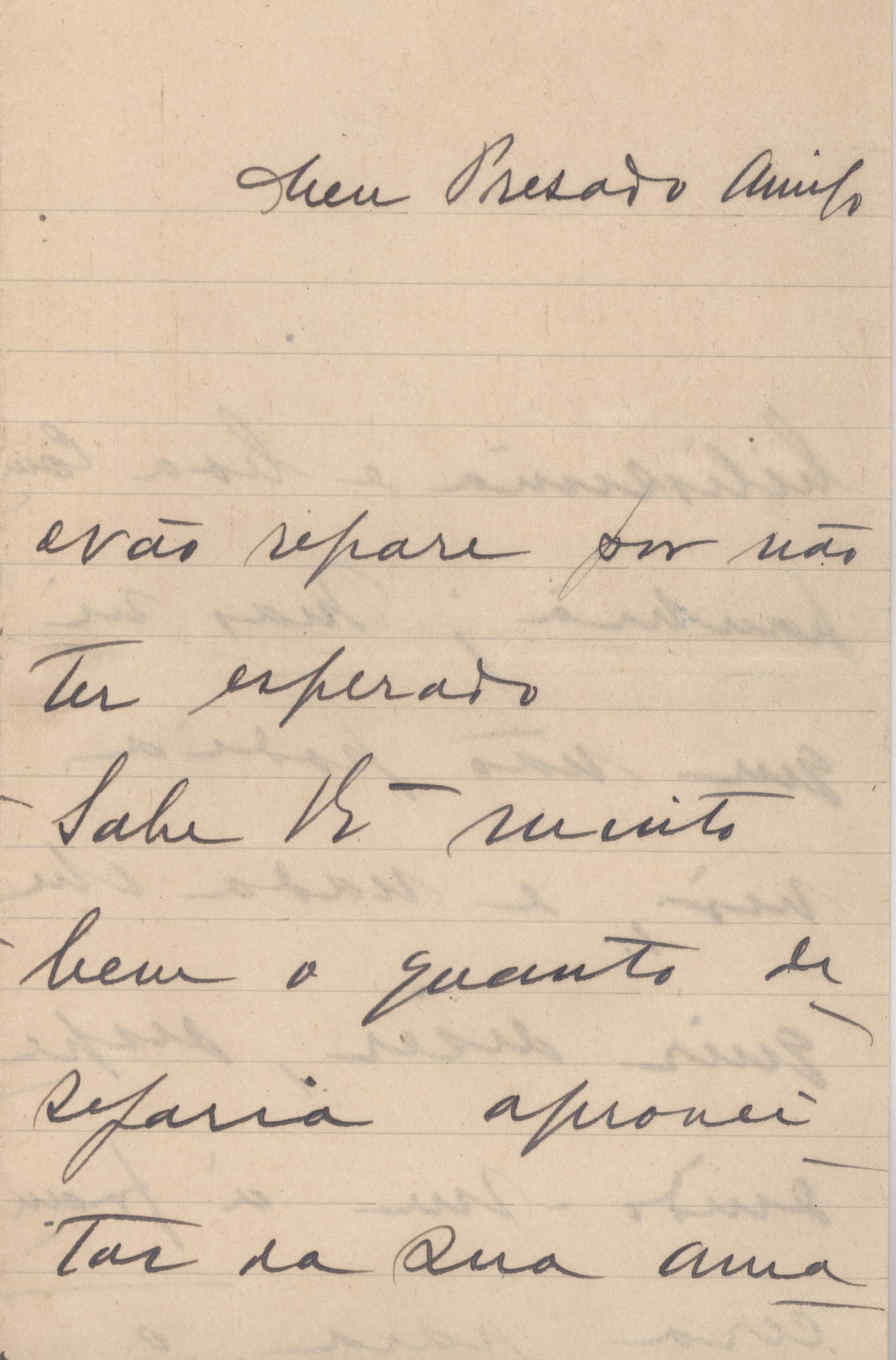 Meu Presado Amigo
Não repare por não
ter esperado
Sabe V. muito
bem o quanto de
sejaria aprovei
tar da sua ama